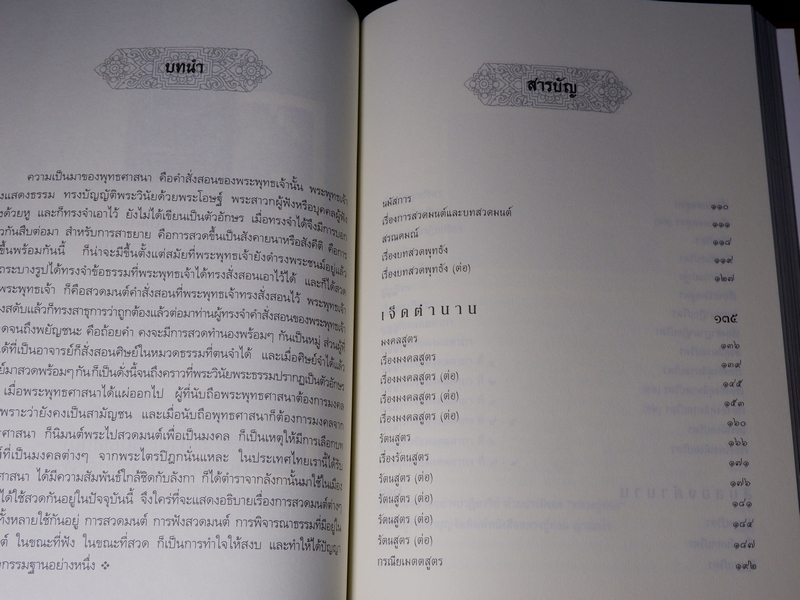 บทนำ
ความเป็นมาของพุทธศาสนา คือคำสั่งสอนของพระพุทธเจ้านั้น พระพุทธเจ้า
งแสดงธรรม ทรงบัญญัติพระวินัยด้วยพระโอษฐ์ พระสาวกผู้ฟังหรือบุคคลผู้ฟัง
งด้วยหู และก็ทรงจำเอาไว้ ยังไม่ได้เขียนเป็นตัวอักษร เมื่อทรงจำได้จึงมีการบอก
วกันสืบต่อมา สำหรับการสาธยาย คือการสวดขึ้นเป็นสังคายนาหรือสังคีติ คือการ
ขึ้นพร้อมกันนี้ ก็น่าจะมีขึ้นตั้งแต่สมัยที่พระพุทธเจ้ายังดำรงพระชนม์อยู่แล้ว
ถระบางรูปได้ทรงจำข้อธรรมที่พระพุทธเจ้าได้ทรงสั่งสอนเอาไว้ได้ และก็ได้สวด
พระพุทธเจ้า ก็คือสวดมนต์คำสั่งสอนที่พระพุทธเจ้าทรงสั่งสอนไว้ พระพุทธเจ้า
งสดับแล้วก็ทรงสาธุการว่าถูกต้องแล้วต่อมาท่านผู้ทรงจำคำสั่งสอนของพระพุทธเจ้า
ดจนถึงพยัญชนะ คือถ้อยคำ คงจะมีการสวดทำนองพร้อมๆ กันเป็นหมู่ ส่วนผู้ที่
ได้ที่เป็นอาจารย์ก็สั่งสอนศิษย์ในหมวดธรรมที่ตนจำได้ และเมื่อศิษย์จำได้แล้ว
ย์มาสวดพร้อมๆกันก็เป็นดั่งนี้จนถึงคราวที่พระวินัยพระธรรมปรากฏเป็นตัวอักษร
เมื่อพระพุทธศาสนาได้แผ่ออกไป ผู้ที่นับถือพระพุทธศาสนาต้องการมงคล
เพราะว่ายังคงเป็นสามัญชน และเมื่อนับถือพุทธศาสนาก็ต้องการมงคลจาก
ศาสนา ก็นิมนต์พระไปสวดมนต์เพื่อเป็นมงคล ก็เป็นเหตุให้มีการเลือกบท
ต์ที่เป็นมงคลต่างๆ จากพระไตรปิฎกนั่นแหละ ในประเทศไทยเรานี้ได้รับ
ศาสนา ได้มีความสัมพันธ์ใกล้ชิดกับลังกา ก็ได้ตำราจากลังกานั้นมาใช้ในเมือง
ได้ใช้สวดกันอยู่ในปัจจุบันนี้ จึงใคร่ที่จะแสดงอธิบายเรื่องการสวดมนต์ต่างๆ
ทั้งหลายใช้กันอยู่ การสวดมนต์ การฟังสวดมนต์ การพิจารณาธรรมที่มีอยู่ใน
ต์ ในขณะที่ฟัง ในขณะที่สวด ก็เป็นการทำใจให้สงบ และทำให้ได้ปัญญา
งกรรมฐานอย่างหนึ่ง ❖
สารบัญ
นมัสการ ๑๑๐
เรื่องการสวดมนต์และบทสวดมนต์ ๑๑๑
สรณคมณ์ ๑๑๔
เรื่องบทสวดพุทธัง ๑๑๙
เรื่องบทสวดพุทธัง (ต่อ) ๑๒๗
เจ็ดตำนาน ๑๓๕
มงคลสูตร ๑๓๖
เรื่องมงคลสูตร ๑๓๙
เรื่องมงคลสูตร (ต่อ) ๑๔๕
เรื่องมงคลสูตร (ต่อ) ๑๕๓
เรื่องมงคลสูตร (ต่อ) ๑๖๐
รัตนสูตร ๑๖๖
เรื่องรัตนสูตร ๑๗๑
รัตนสูตร (ต่อ) ๑๗๖
รัตนสูตร (ต่อ) ๑๘๑
รัตนสูตร (ต่อ) ๑๘๔
รัตนสูตร (ต่อ) ๑๘๗
กรณียเมตตสูตร ๑๙๒